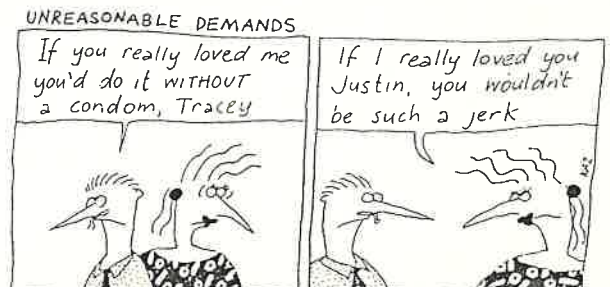 UNREASONABLE DEMANDS
If you really loved me
you'd do it WITHOUT
a condom, Tracey
If I really loved you
Justin, you wouldn't
be such a jerk